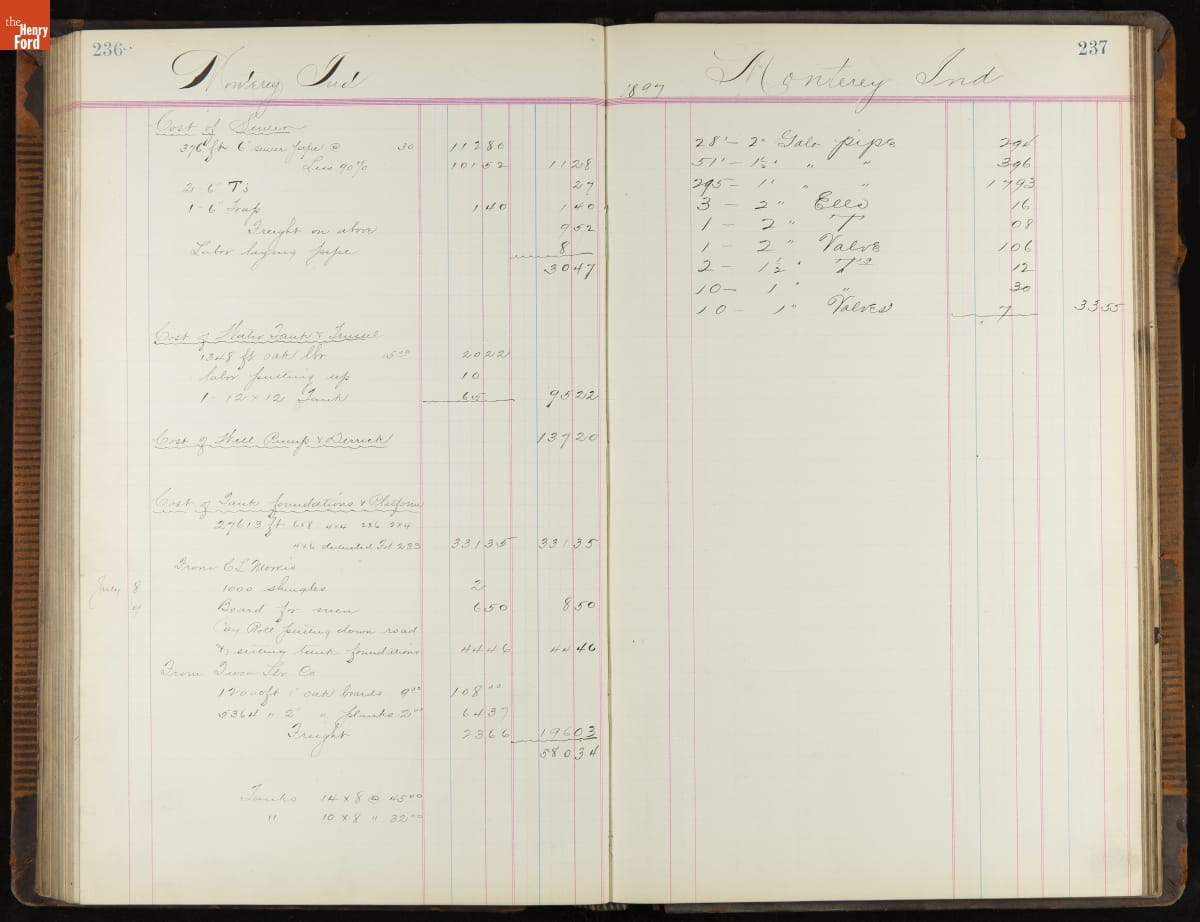 the Henry Ford
236
Monterey Ind
Cost of Sewer
376 ft 6" sewer pipe @ 30 112 80
Less 90% 101 52 11 28
2-6" T's 27
1-6" Trap 1 40 1 40
Freight on above 9 52
Labor laying pipe 8
30 47
Cost of Water Tank & Trussel
1348 ft oak lbr 15 00 20 22
labor putting up 10
1- 12 x 12 Tank 65 95 22
Cost of Well Pump & Derrick 137 20
Cost of Tank foundations & Platform
27613 ft 6x8 4x4 2x6 2x4
4x6 deducted Fol 233 331 35 331 35
From C L Morris
July 8 1000 shingles 2
" Board for men 6 50 8 50
Pay Roll putting down road
& setting tank foundations 44 46 44 46
From Lbr Co
12000 ft 1" oak boards 9 00 108 00
5364 " 2" " planks 64 37
Freight 23 66 196 03
580 34
Tanks 14 x 8 @ 45 00
" 10 x 8 " 32 00
237
1897 Monterey Ind
28' - 2" Galv pipe
51' - 1½" " " 3 96
295 - 1" " " 17 93
3 - 2" Ells 16
1 - 2" T 08
1 - 2" Valve 1 06
2 - 1½" Ts 12
10 - 1" " 30
10 - 1" Valves 7 33 55